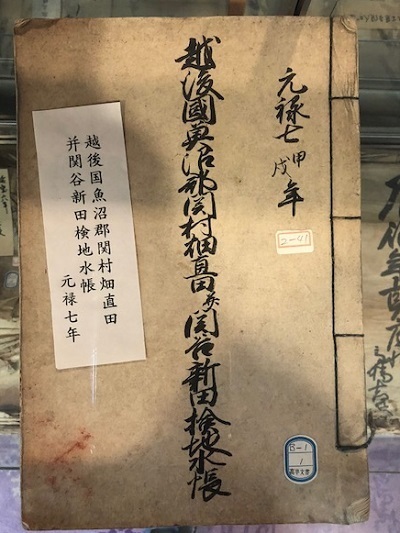 元禄七甲戌年
越後國魚沼郡関村畑直田并関谷新田検地水帳
越後国魚沼郡関村畑直田
并関谷新田検地水帳
元禄七年
2-41
B-1
1